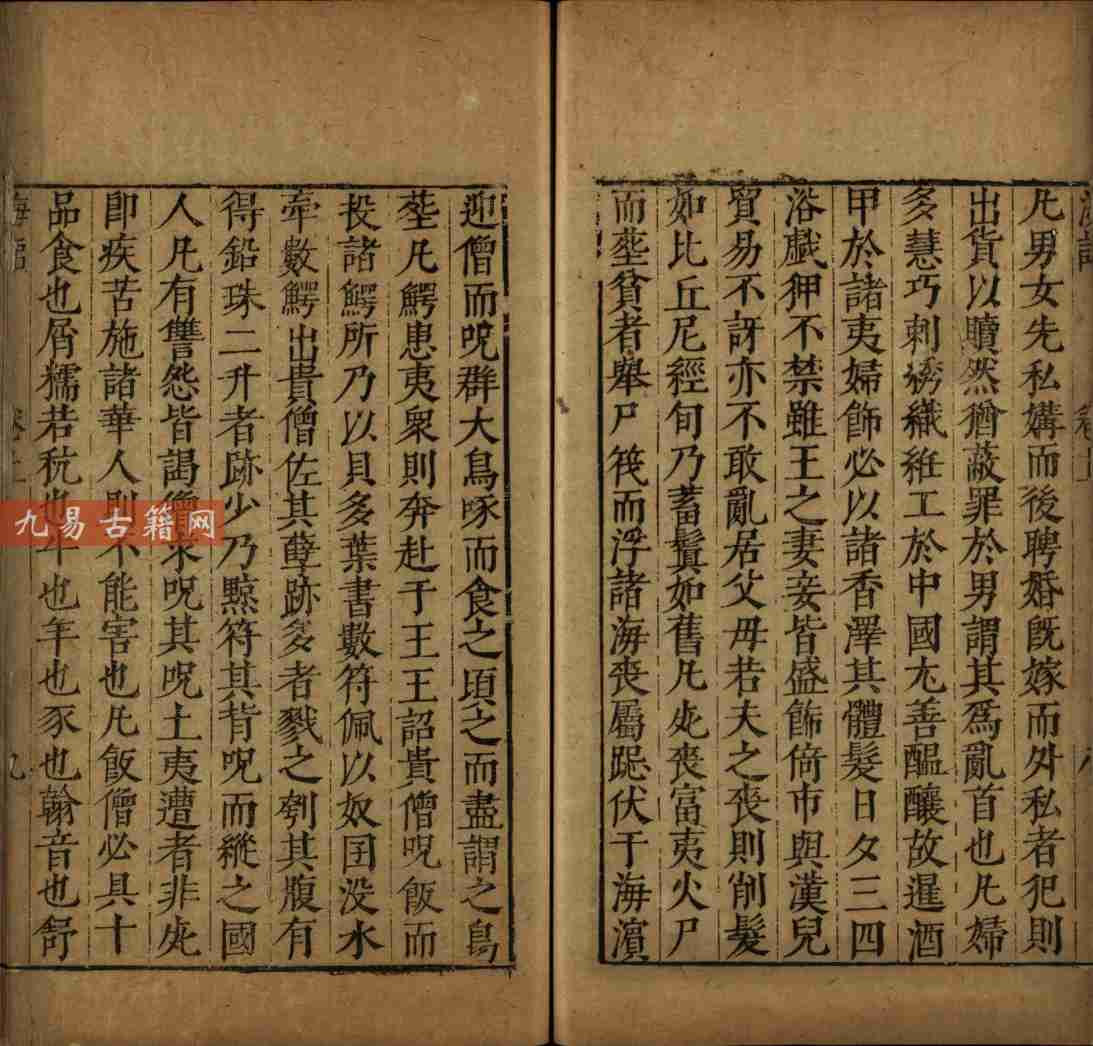 海語 卷上 八
凡男女先私媾而後聘婚既嫁而外私者犯則
出貨以贖然猶蔽罪於男謂其爲亂首也凡婦
多慧巧刺綉織絍工於中國尢善醖釀故暹酒
甲於諸夷婦飾必以諸香澤其體髮日夕三四
浴戱狎不禁雖王之妻妾皆盛飾倚市與漢兒
貿易不訝亦不敢亂居父母若夫之喪則削髮
如比丘尼經旬乃蓄鬒如舊凡𣦸喪富夷火尸
而塟貧者舉尸筏而浮諸海喪屬跽伏于海濵
迎僧而呪群大鳥啄而食之頃之而盡謂之鳥
塟凡鰐患夷衆則奔赴于王王詔貴僧呪飯而
投諸鰐所乃以貝多葉書數符佩以奴囯没水
牽數鰐出貴僧佐其孽跡多者戮之刳其腹有
得鉛珠二升者跡少乃㸃符其背呪而縱之國
人凡有讐怨皆謁僧求呪其呪土夷遭者非𣦸
卽疾苦施諸華人則不能害也凡飯僧必具十
品食也屑糯若秔也牛也羊也豕也翰音也舒
海語 卷上 九
九易古籍网